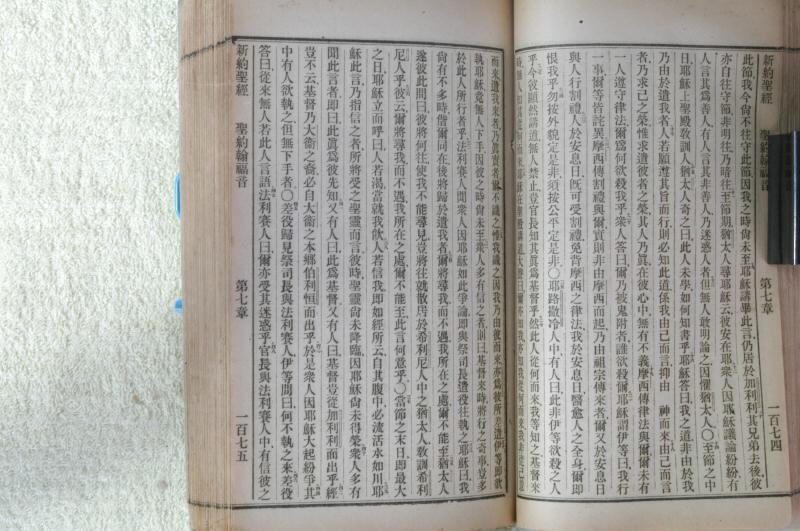 新約聖經　聖約翰福音　第七章　一百七四
此節我今尙不往守此節因我之時尙未至耶穌講畢此言仍居於加利利其兄弟去後彼
亦自往守節非明往乃暗往至節期猶太人尋耶穌云彼安在耶衆人因耶穌議論紛紛有
人言其爲善人有人言其非善人乃迷惑人者但無人敢明論之因懼猶太人〇至節之中
日耶穌上聖殿敎訓人猶太人奇之曰此人未學如何知書乎耶穌答曰我之道非由於我
乃由於遣我者人若願遵其旨而行則必知此道係我由己而言抑由　神而來由己而言
者乃求己之榮惟求遣彼者之榮其人乃眞在彼心中無有不義摩西傳律法與爾爾未有
一人遵守律法爾爲何欲殺我乎衆人答曰爾乃被鬼附者誰欲殺爾耶穌謂伊等曰我行
一事爾等皆詫異摩西傳割禮與爾割則非由摩西而起乃由祖宗傳來者爾又於安息日
與人行割禮人於安息日旣可受割禮免背摩西之律法我於安息日醫愈人之全身爾即
恨我乎勿按外貌定是非須按公平定是非〇耶路撒冷人中有人曰此非伊等欲殺之人
乎今彼顯然講道無人禁止豈官長識其眞爲基督乎然此人從何而來我等知之基督來
而來遣我來者乃眞實者爾不識之惟我識之因我乃由彼而來亦爲彼所差遣伊等即欲
執耶穌竟無人下手因彼之時尙未至衆人多有信之者則曰基督來時將行之奇事豈多
於此人所行者乎法利賽人聞衆人因耶穌如此爭論即與祭司長遣役往執之耶穌曰我
尙有不多時偕爾同在後將歸於遣我者爾將尋我而不遇我所在之處爾不能至猶太人
遂彼此問曰彼將何往使我不能尋見豈將往就散居於希利尼人中之猶太人敎訓希利
尼人乎彼云爾將尋我而不遇我所在之處爾不能至此言何意乎〇當節之末日即最大
之日耶穌立而呼曰人若渴當就我飮人若信我即如經所云自其腹中必流活水如川耶
穌此言乃指信之者所將受之聖靈而言彼時聖靈尙未降臨因耶穌尙未得榮衆人多有
聞此言者即曰此眞爲彼先知又有人曰此爲基督又有人曰基督豈從加利利而出乎經
豈不云基督乃大衛之裔必自大衛之本鄕伯利恒而出乎於是衆人因耶穌大起紛爭其
中有人欲執之但無下手者〇差役歸見祭司長與法利賽人伊等問曰何不執之來差役
答曰從來無人若此人言語法利賽人曰爾亦受其迷惑乎官長與法利賽人中有信彼之
新約聖經　聖約翰福音　第七章　一百七五